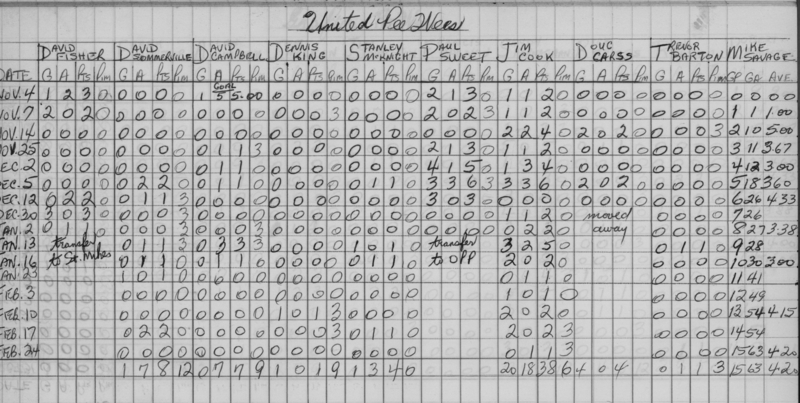 United Pee Wees
DAVID FISHER DAVID SOMMERVILLE DAVID CAMPBELL DENNIS KING STANLEY MCKNIGHT PAUL SWEET JIM COOK DOUG CARSS TREVOR BARTON MIKE SAVAGE
DATE G A Pts Pim G A Pts Pim G A Pts Pim G A Pts Pim G A Pts Pim G A Pts Pim G A Pts Pim G A Pts Pim G A Pts Pim GP GA AVE
NOV. 4 1 2 3 0 0 0 0 0 1 GOAL 5 5.00 0 0 0 0 0 0 0 0 2 1 3 0 1 1 2 0 0 0 0 0 0 0 0 0 0 0 0 0
NOV. 7 2 0 2 0 0 0 0 0 0 0 0 0 0 0 0 3 0 0 0 0 2 0 2 3 1 1 2 0 0 0 0 0 0 0 0 0 1 1 1.00
NOV. 14 0 0 0 0 0 0 0 0 0 0 0 0 0 0 0 0 0 0 0 0 0 0 0 0 2 2 4 0 2 0 2 0 0 0 0 3 2 10 5.00
NOV. 25 0 0 0 0 0 0 0 0 0 1 1 3 0 0 0 0 0 0 0 0 2 1 3 0 1 1 2 0 0 0 0 0 0 0 0 0 3 11 3.67
DEC. 2 0 0 0 0 0 0 0 0 0 1 1 0 0 0 0 0 0 0 0 0 4 1 5 0 1 3 4 0 0 0 0 0 0 0 0 0 4 12 3.00
DEC. 5 0 0 0 0 0 2 2 0 0 1 1 0 0 0 0 0 0 1 1 0 3 3 6 3 3 3 6 0 2 0 2 0 0 0 0 0 5 18 3.60
DEC. 12 0 2 2 0 0 1 1 3 0 0 0 0 0 0 0 0 0 0 0 0 3 0 3 0 0 0 0 0 0 0 0 0 0 0 0 0 6 26 4.33
DEC. 30 3 0 3 0 0 0 0 3 0 0 0 0 0 0 0 0 0 0 0 0 1 1 2 0 moved 0 0 0 0 7 26
JAN. 2 0 0 0 0 3 0 0 0 3 0 0 0 0 0 0 0 0 0 2 2 0 away 0 0 0 0 8 27 3.38
JAN. 13 transfer 0 1 1 3 0 3 3 3 0 0 0 0 1 0 1 0 transfer 3 2 5 0 0 1 1 0 9 28
JAN. 16 to St. Mikes 0 1 1 0 0 1 1 0 0 0 0 0 0 1 1 0 to OPP 2 0 2 0 0 0 0 0 10 30 3.00
JAN. 23 1 0 1 0 0 0 0 0 0 0 0 0 0 0 0 0 0 1 1 0 0 0 0 0 11 41
FEB. 3 0 0 0 0 0 0 0 0 0 0 0 0 0 0 0 0 1 0 1 0 0 0 0 0 12 49
FEB. 10 0 0 0 0 0 0 0 0 1 0 1 3 0 0 0 0 2 0 2 0 0 0 0 0 13 54 4.15
FEB. 17 0 2 2 0 0 0 0 0 0 0 0 3 0 1 1 0 2 0 2 3 0 0 0 0 14 54
FEB. 24 0 0 0 0 0 0 0 0 0 0 0 0 0 0 0 0 0 1 1 3 0 0 0 0 15 63 4.20
1 7 8 12 0 7 7 9 1 0 1 9 1 3 4 0 20 18 38 6 4 0 4 0 1 1 3 15 63 4.20